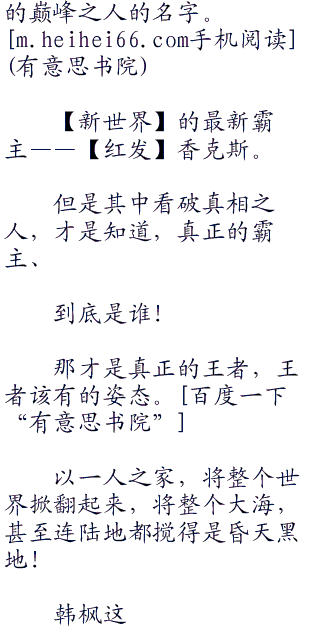 的巅峰之人的名字。
[m.heihei66.com手机阅读]
(有意思书院)
【新世界】的最新霸
主——【红发】香克斯。
但是其中看破真相之
人，才是知道，真正的霸
主、
到底是谁！
那才是真正的王者，王
者该有的姿态。[百度一下
“有意思书院”]
以一人之家，将整个世
界掀翻起来，将整个大海，
甚至连陆地都搅得是昏天黑
地！
韩枫这